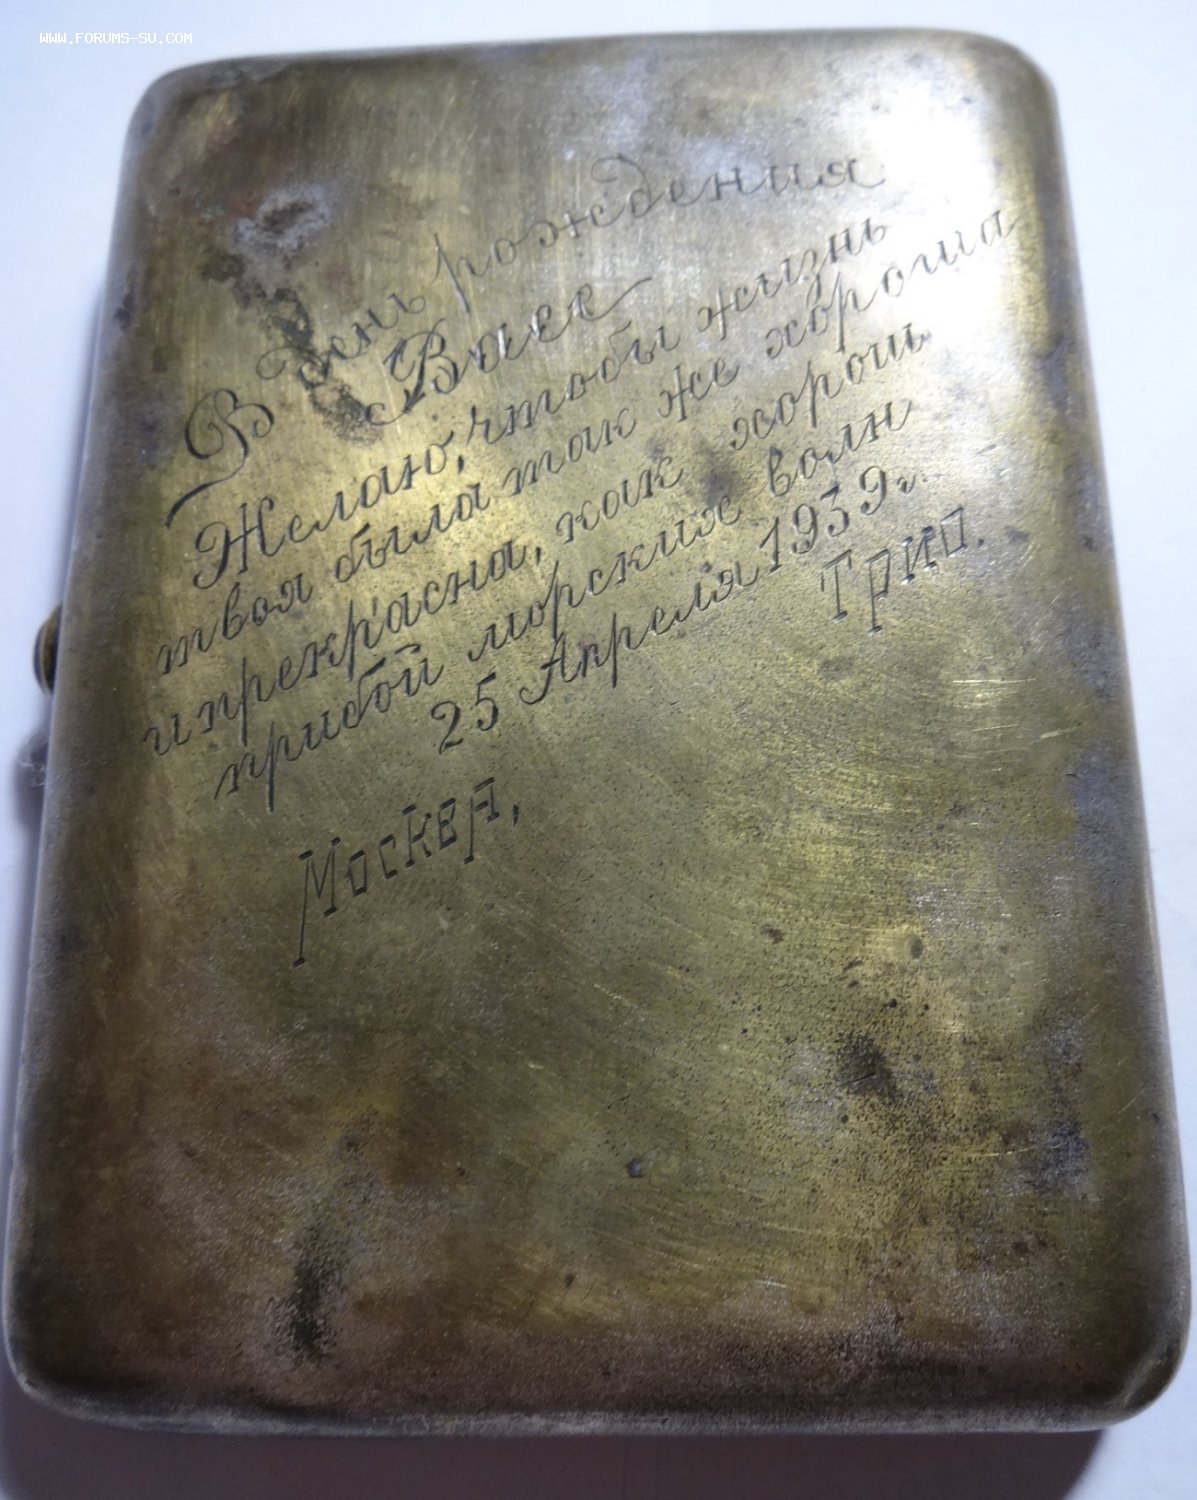 WWW.FORUMS-SU.COM
В День рождения
Васе
Желаю, чтобы жизнь
твоя была так же хороша
и прекрасна, как хорош
прибой морских волн
25 Апреля 1939 г.
Москва,